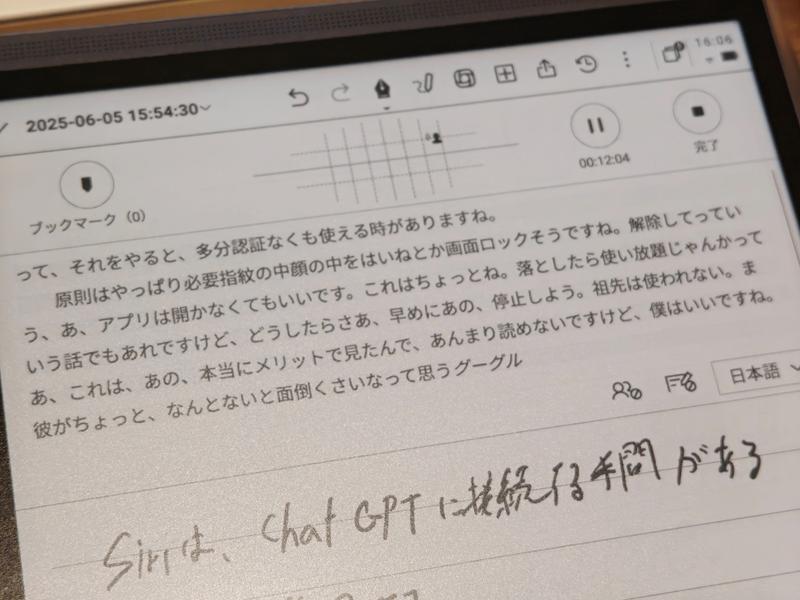 16:06
2025-06-05 15:54:30
ブックマーク（0）
00:12:04
完了
って、それをやると、多分認証なくも使える時がありますね。
原則はやっぱり必要指紋の中顔の中をはいねとか画面ロックそうですね。解除してってい
う、あ、アプリは開かなくてもいいです。これはちょっとね。落としたら使い放題じゃんかって
いう話でもあれですけど、どうしたらさあ、早めにあの、停止しよう。祖先は使われない。ま
あ、これは、あの、本当にメリットで見たんで、あんまり読めないですけど、僕はいいですね。
彼がちょっと、なんとないと面倒くさいなって思うグーグル
日本語
Siriは、Chat GPTに接続する手間がある